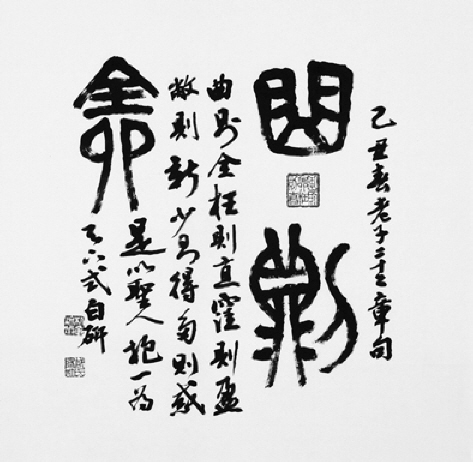 乙丑春老子二十二章句
曲則
全
曲则全枉则直窪则盈
敝则新少则得多则惑
是以聖人抱一為
天下式自研